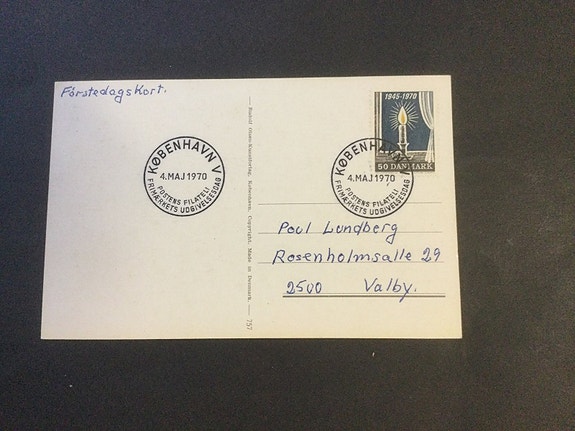 Förstedagskort.
KØBENHAVN V
4.MAJ 1970
POSTENS FILATELI
FRIMÆRKETS UDGIVELSESDAG
Rudolf Olsens Kunstforlag, København. Copyright. Made in Denmark. — 757
1945-1970
50 DANMARK
KØBENHAVN V
4.MAJ 1970
POSTENS FILATELI
FRIMÆRKETS UDGIVELSESDAG
Poul Lundberg
Rosenholmsalle 29
2500 Valby.